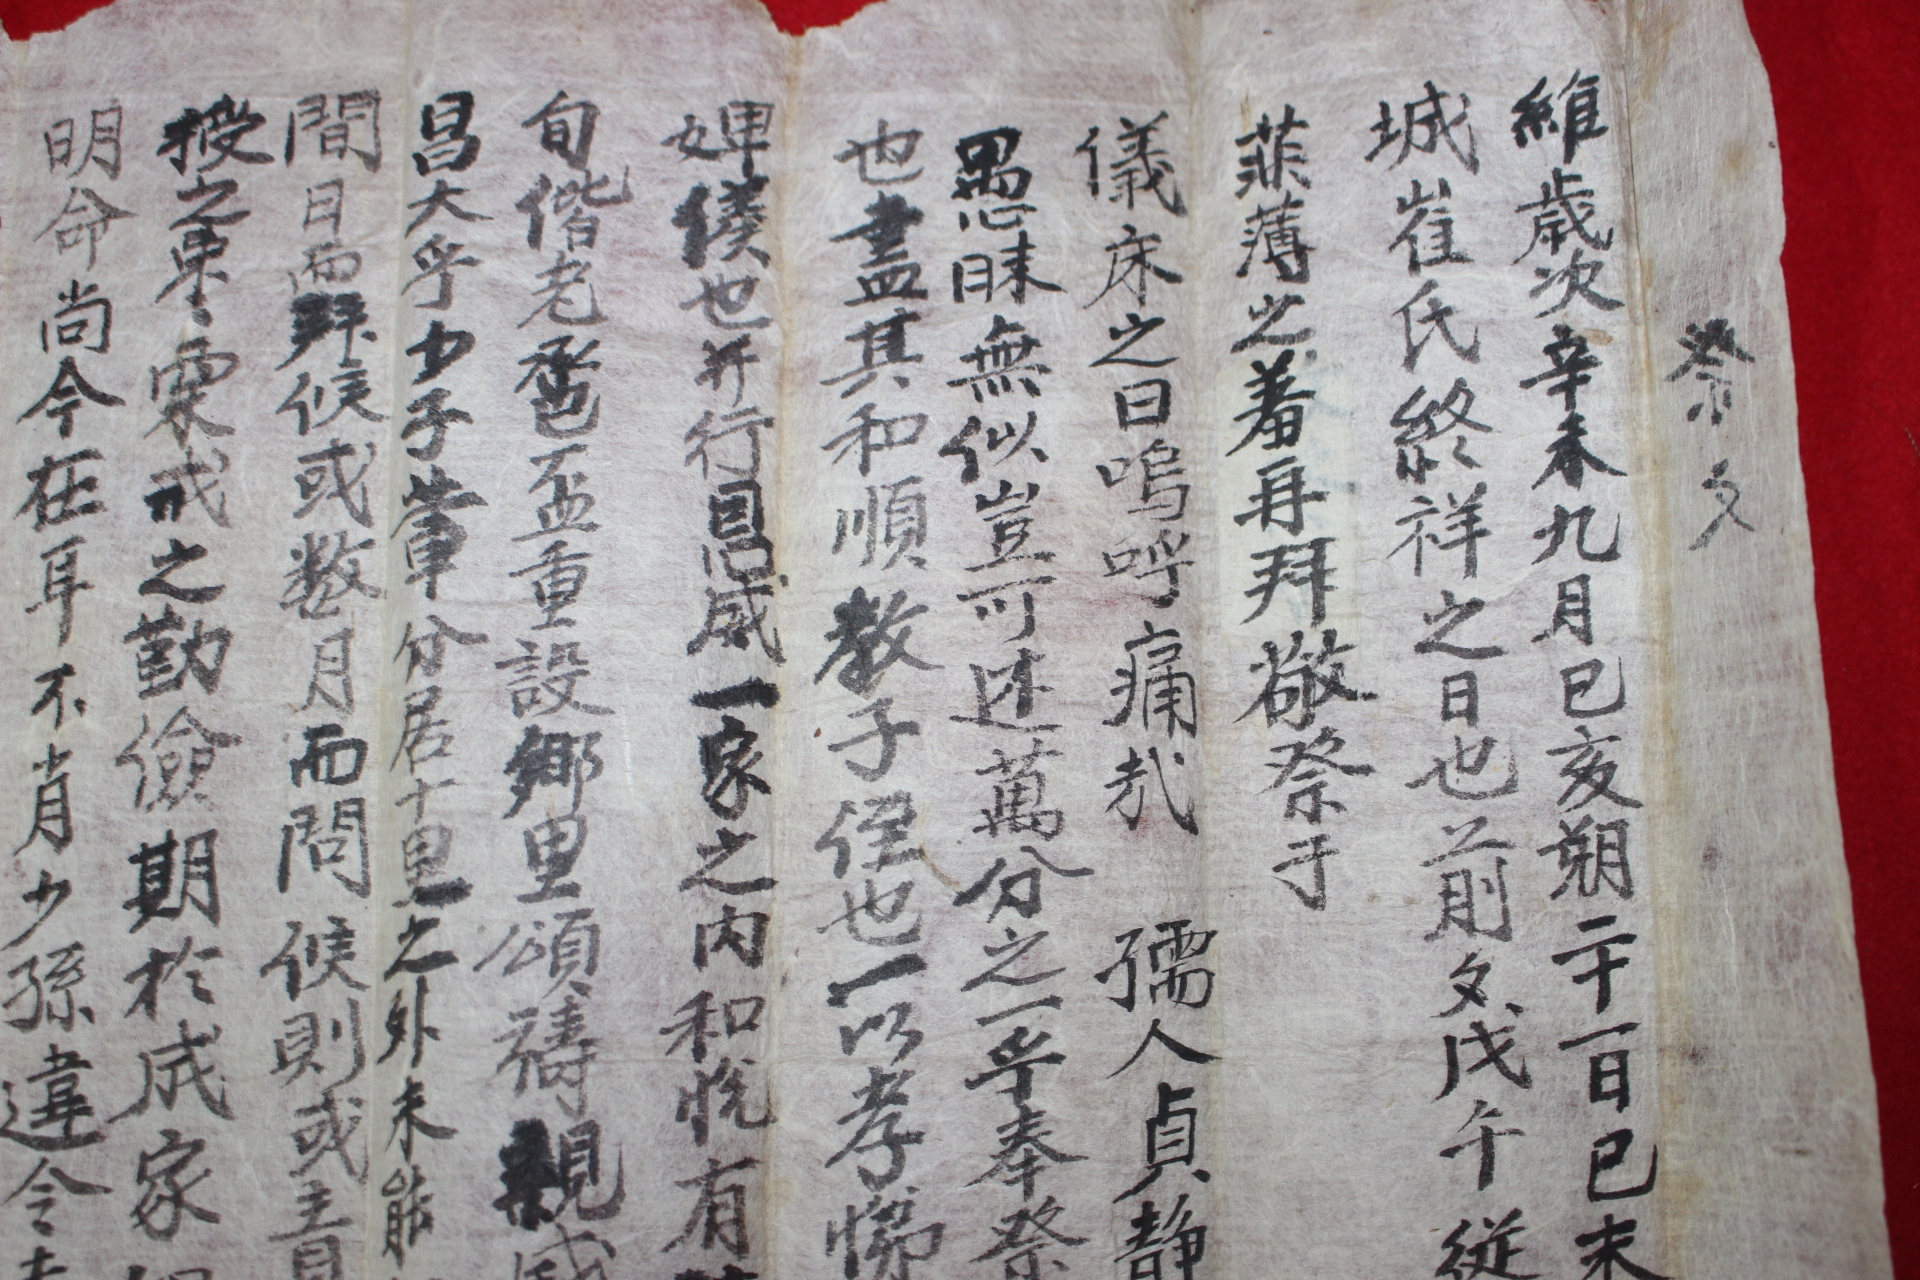 祭文
維歲次辛未九月己亥朔二十一日己未
城崔氏終祥之日也前夕戊午從
菲薄之羞再拜敬祭于
儀床之日嗚呼痛哉 孺人貞靜
愚昧無似豈可述萬分之一乎奉祭
也盡其和順教子侄也一以孝悌
婢僕也并行恩威一家之内和悅有
旬偕老巹盃重設鄉里頌禱親戚
昌大乎少子輩分居十里之外未能
間日而拜候或数月而問候則或責
授之栗栗戒之勤儉期於成家
明命尚今在耳不肖少孫違令